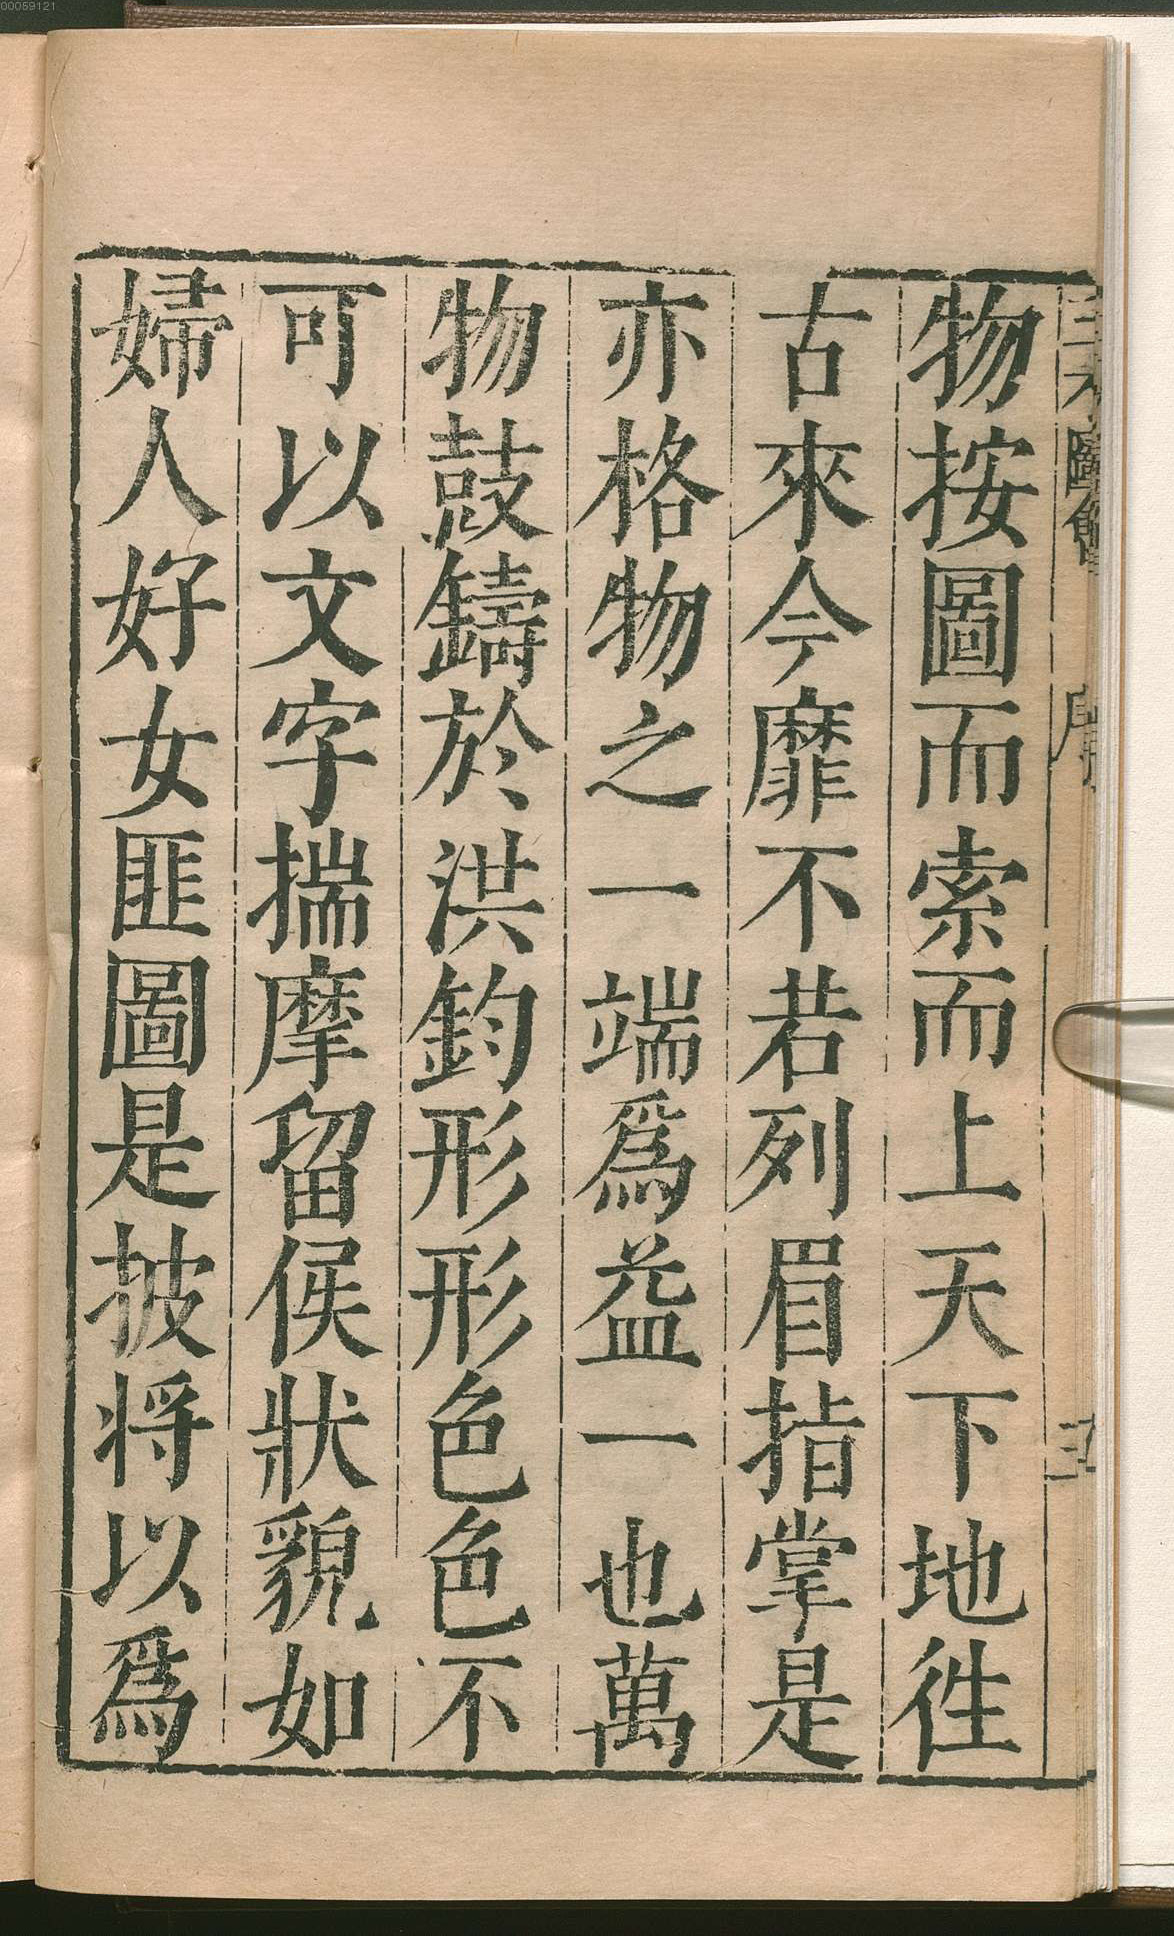 物按圖而索而上天下地徃
古來今靡不若列眉指掌是
亦格物之一端爲益一也萬
物鼓鑄於洪鈞形形色色不
可以文字揣摩留侯狀貌如
婦人好女匪圖是披將以爲
00059121